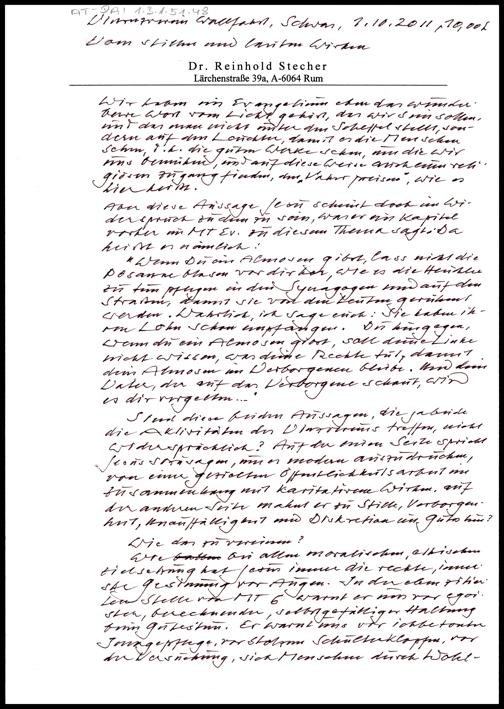 AT-DAI 1.3.1.51.48
Vinzenzverein Wallfahrt, Schwaz, 1.10.2011, 10,00h
Vom stillen und lauten Wirken
Dr. Reinhold Stecher
Lärchenstraße 39a, A-6064 Rum
Wir haben im Evangelium eben das wunder-
bare Wort vom Licht gehört, das wir sein sollen,
und das man nicht unter den Scheffel stellt, son-
dern auf den Leuchter, damit es die Menschen
sehen, d.h. die guten Werke sehen, um die wir
uns bemühen, und auf diese Weise auch einen reli-
giösen Zugang finden, den „Vater preisen", wie es
hier heißt.
Aber diese Aussage Jesu scheint doch im Wi-
derspruch zu dem zu sein, was er ein Kapitel
im MT Ev. zu diesem Thema sagt. Da
heißt es nämlich:
"Wenn Du ein Almosen gibst, lass nicht die
Posaune blasen vor dir her, wie es die Heuchler
zu tun pflegen in den Synagogen und auf den
Straßen, damit sie von den Leuten gerühmt
werden. Wahrlich, ich sage euch: Sie haben ih-
ren Lohn schon empfangen. Du hingegen,
wenn du ein Almosen gibst, soll deine Linke
nicht wissen, was deine Rechte tut, damit
dein Almosen im Verborgenen bleibe. Und dein
Vater, der auf das Verborgene schaut, wird
es dir vergelten..."
Sind diese beiden Aussagen, die ja beide
die Aktivitäten des Vinzenzvereins treffen, nicht
widersprüchlich? Auf der einen Seite spricht
Jesus sozusagen, um es modern auszudrücken,
von einer gezielten Öffentlichkeitsarbeit im
Zusammenhang mit karitativem Wirken, auf
der anderen Seite mahnt er zu Stille, Verborgen-
heit, Unauffälligkeit und Diskretion im Gutes tun?
Wie das zu vereinen?
Wie bei allen moralischen, ethischen
Zielsetzung hat Jesus immer die rechte, inner-
ste Gesinnung vor Augen. In der eben zitier-
ten Stelle von MT 6 warnt er uns vor egoi-
stischer, berechnender, selbstgefälliger Haltung
beim Gutestun. Er warnt uns vor ichbetonter
Imagepflege, vor stolzem Schulterklopfen, vor
der Versuchung, sich Menschen durch Wohl-